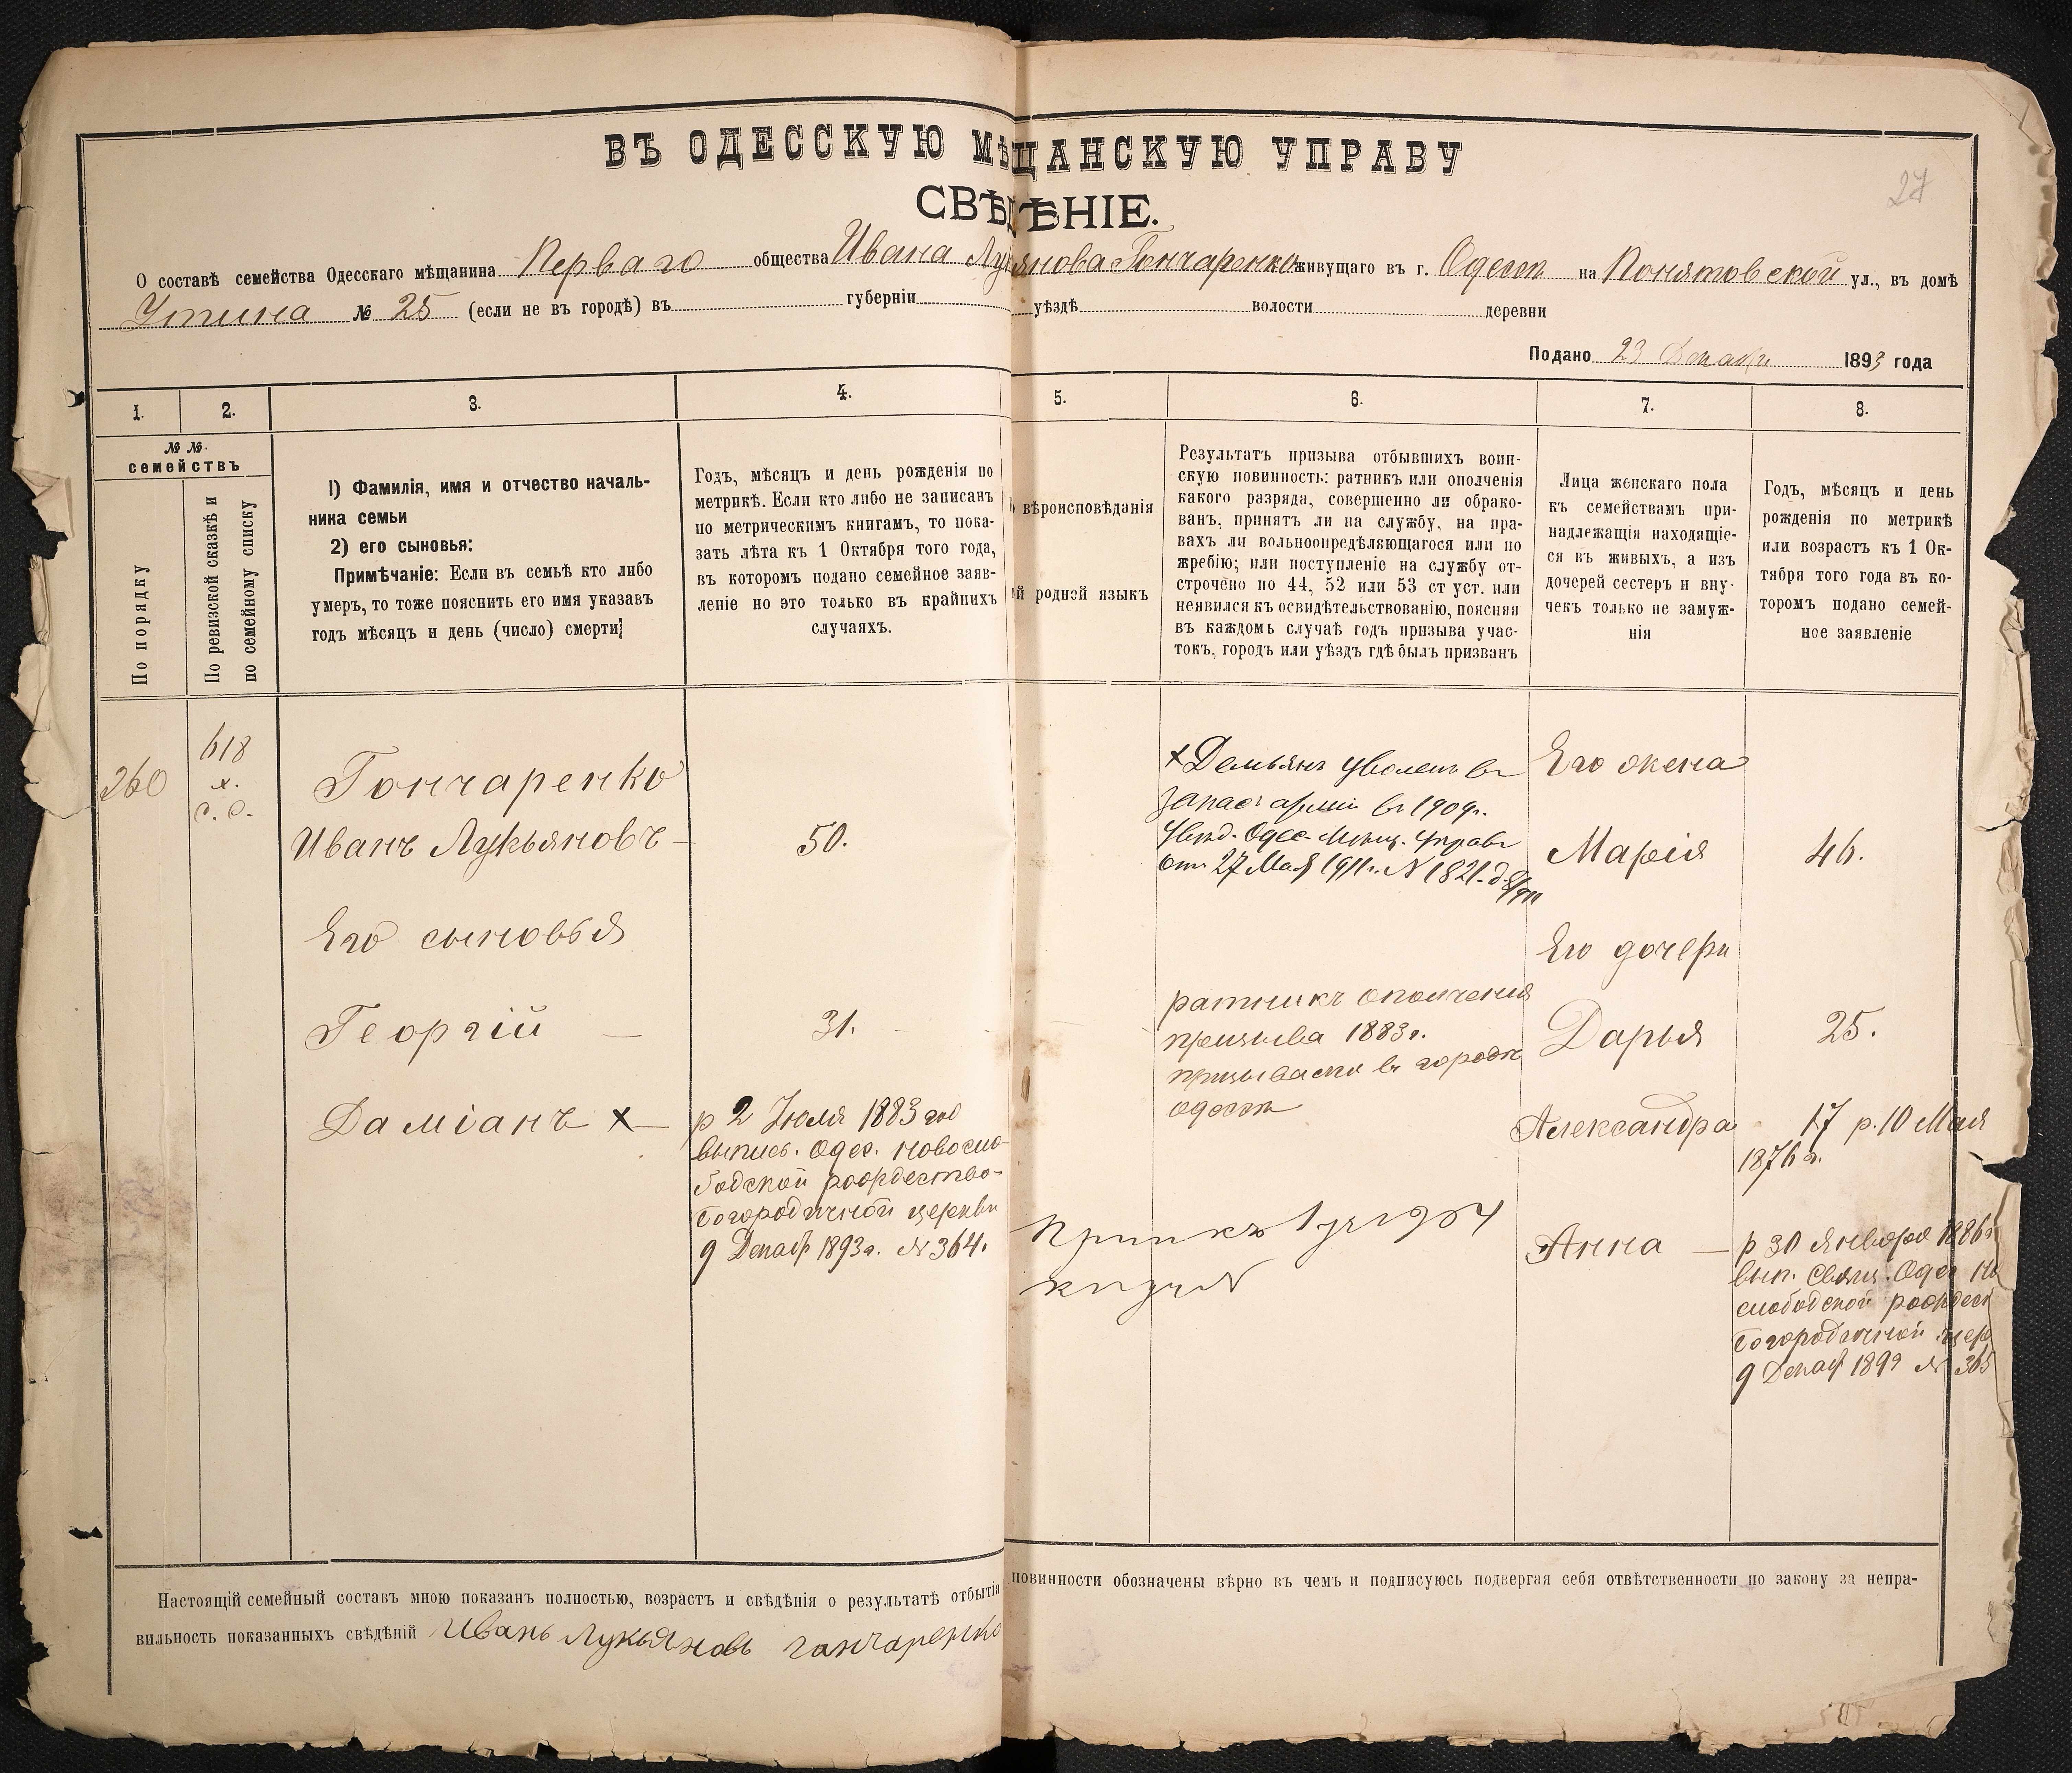 ВЪ ОДЕССКУЮ МѢЩАНСКУЮ УПРАВУ
27
СВѢДѢНІЕ.
О составѣ семейства Одесскаго мѣщанина Перваго общества Ивана Лукьянова Гончаренко живущаго въ г. Одессѣ на Понятовской ул., въ домѣ
Утина № 25 (если не въ городѣ) въ губерніи уѣздѣ волости деревни
Подано 23 Декабря 1893 года
1. 2. 3. 4. 5. 6. 7. 8.
№ №
семействъ
По порядку
По ревизской сказкѣ и
по семейному списку
1) Фамилія, имя и отчество началь-
ника семьи
2) его сыновья:
Примѣчаніе: Если въ семьѣ кто либо
умеръ, то тоже пояснить его имя указавъ
годъ мѣсяцъ и день (число) смерти;
Годъ, мѣсяцъ и день рожденія по
метрикѣ. Если кто либо не записанъ
по метрическимъ книгамъ, то пока-
зать лѣта къ 1 Октября того года,
въ которомъ подано семейное заяв-
леніе но это только въ крайнихъ
случаяхъ.
вѣроисповѣданія
й родной языкъ
Результатъ призыва отбывшихъ воин-
скую повинность: ратникъ или ополченія
какого разряда, совершенно ли обрако-
ванъ, принятъ ли на службу, на пра-
вахъ ли вольноопредѣляющагося или по
жребію; или поступленіе на службу от-
строчено по 44, 52 или 53 ст уст. или
неявился къ освидѣтельствованію, поясняя
въ каждомъ случаѣ годъ призыва учас-
токъ, городъ или уѣздъ гдѣ былъ призванъ
Лица женскаго пола
къ семействамъ при-
надлежащія находящіе-
ся въ живыхъ, а изъ
дочерей сестеръ и вну-
чекъ только не замуж-
нія
Годъ, мѣсяцъ и день
рожденія по метрикѣ
или возрастъ къ 1 Ок-
тября того года въ ко-
торомъ подано семей-
ное заявленіе
260
618
х.
с. с.
Гончаренко
Иванъ Лукьяновъ —
50.
Его сыновья
Георгій —
31.
Даміанъ х —
р 2 Іюля 1883 год
выпись. Одес. новосло-
бодской рождество-
богородичной церкви
9 Декаб 1893 г. № 364.
х Демьянъ уволенъ въ
запасъ арміи въ 1909 г.
Увѣд. Одес. Мѣщ. Управы
отъ 27 Мая 1911 г. № 1821.
ратникъ ополченія
призыва 1883 г.
призывался въ городѣ
одессѣ
1904
Его жена
Марія
46.
Его дочери
Дарья
25.
Александра
17 р. 10 Мая
1876 г.
Анна —
р 30 Января 1886 г
вып. Свящ. Одес Но
слободской рождест
богородичной цер
9 Декаб 1893 № 365
Настоящій семейный составъ мною показанъ полностью, возрастъ и свѣдѣнія о результатѣ отбытія повинности обозначены вѣрно въ чемъ и подписуюсь подвергая себя отвѣтственности по закону за непра-
вильность показанныхъ свѣдѣній Иванъ Лукьяновъ ганчаренко